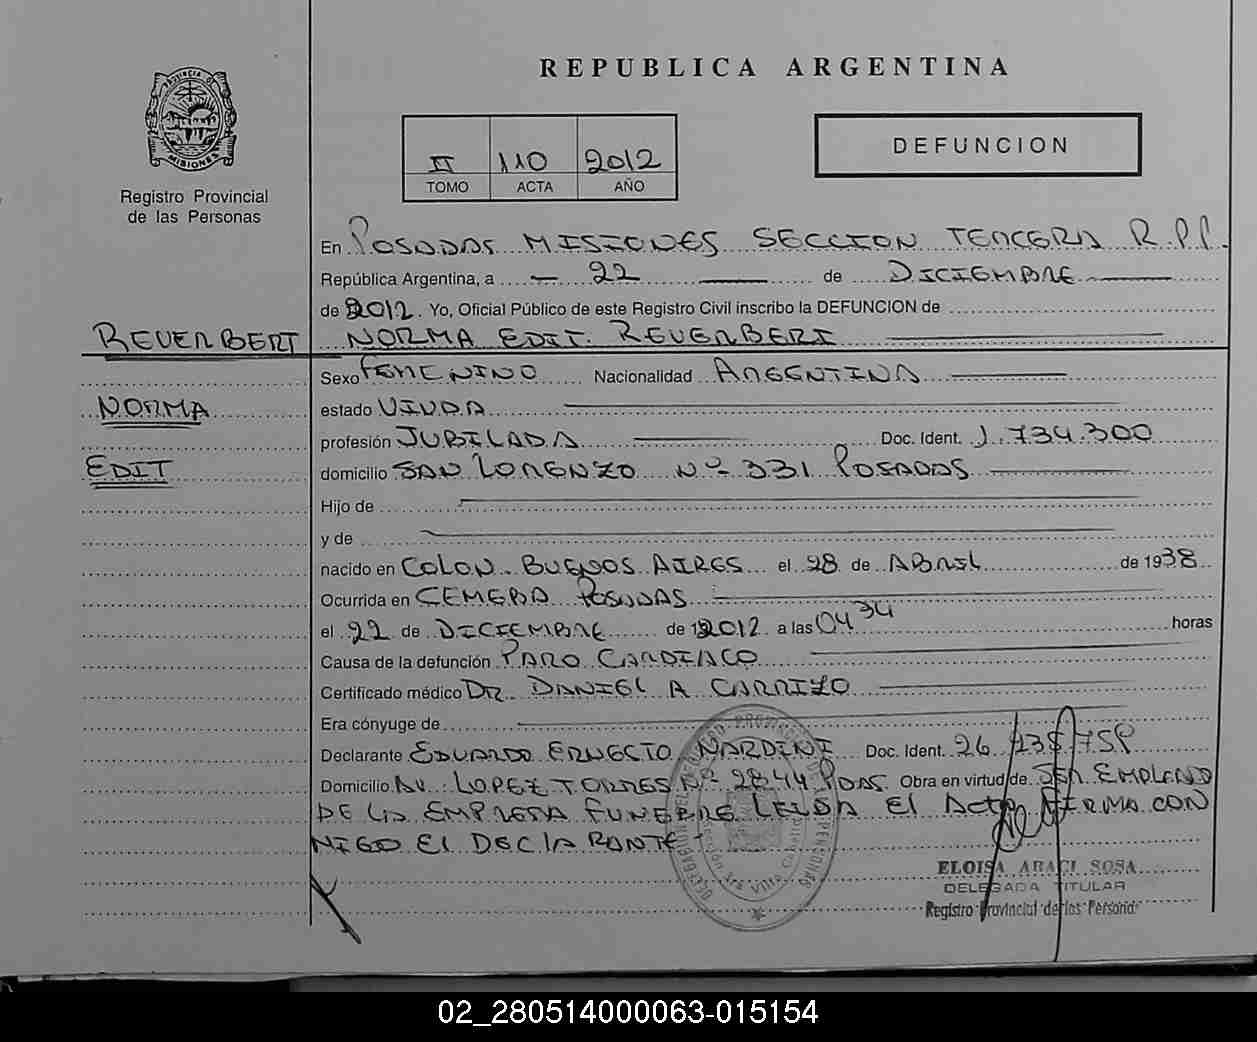 PROVINCIA DE
MISIONES
Registro Provincial
de las Personas
REPUBLICA ARGENTINA
II 110 2012
TOMO ACTA AÑO
DEFUNCION
En POSADAS MISIONES SECCION TERCERA R.P.P.
República Argentina, a 22 de DICIEMBRE
de 2012. Yo, Oficial Público de este Registro Civil inscribo la DEFUNCION de
REVERBERI NORMA EDIT REVERBERI
Sexo FEMENINO Nacionalidad ARGENTINA
NORMA
estado VIUDA
profesión JUBILADA Doc. Ident. 1.734.300
EDIT
domicilio SAN LORENZO Nº 331 POSADAS
Hijo de
y de
nacido en COLON BUENOS AIRES el 28 de ABRIL de 1938
Ocurrida en CEMEBA POSADAS
el 22 de DICIEMBRE de 2012 a las 04 34 horas
Causa de la defunción PARO CARDIACO
Certificado médico DR. DANIEL A CARRIZO
Era cónyuge de
Declarante EDUARDO ERNESTO NARDINI Doc. Ident. 26
Domicilio AV. LOPEZ TORRES Nº 2844 PDAS. Obra en virtud de SER EMPLEADO
DE LA EMPRESA FUNEBRE EL ACTA FIRMA CON
MIGO EL DECLARANTE
ELOISA ARACI SOSA
DELEGADA TITULAR
Registro Provincial de las Personas
02_280514000063-015154